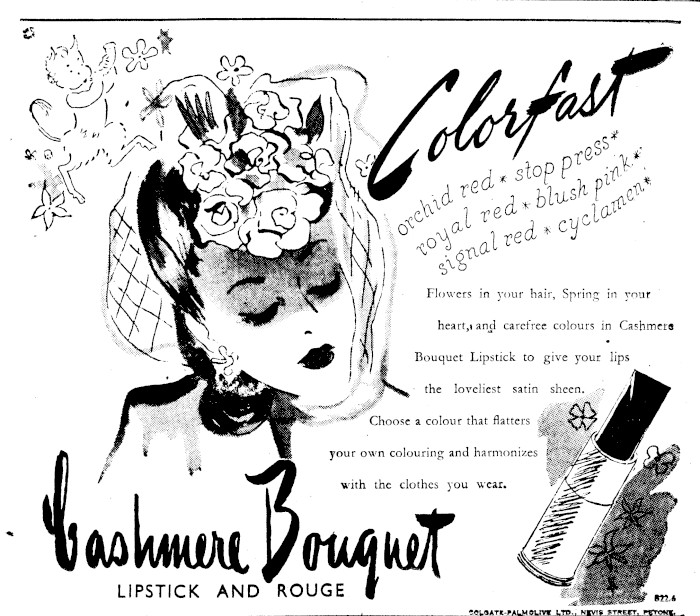 Colorfast
orchid red * stop press *
royal red * blush pink *
signal red * cyclamen *
Flowers in your hair, Spring in your
heart, and carefree colours in Cashmere
Bouquet Lipstick to give your lips
the loveliest satin sheen.
Choose a colour that flatters
your own colouring and harmonizes
with the clothes you wear.
Cashmere Bouquet
LIPSTICK AND ROUGE
B22.6
COLGATE-PALMOLIVE LTD., NEVIS STREET, PETONE.